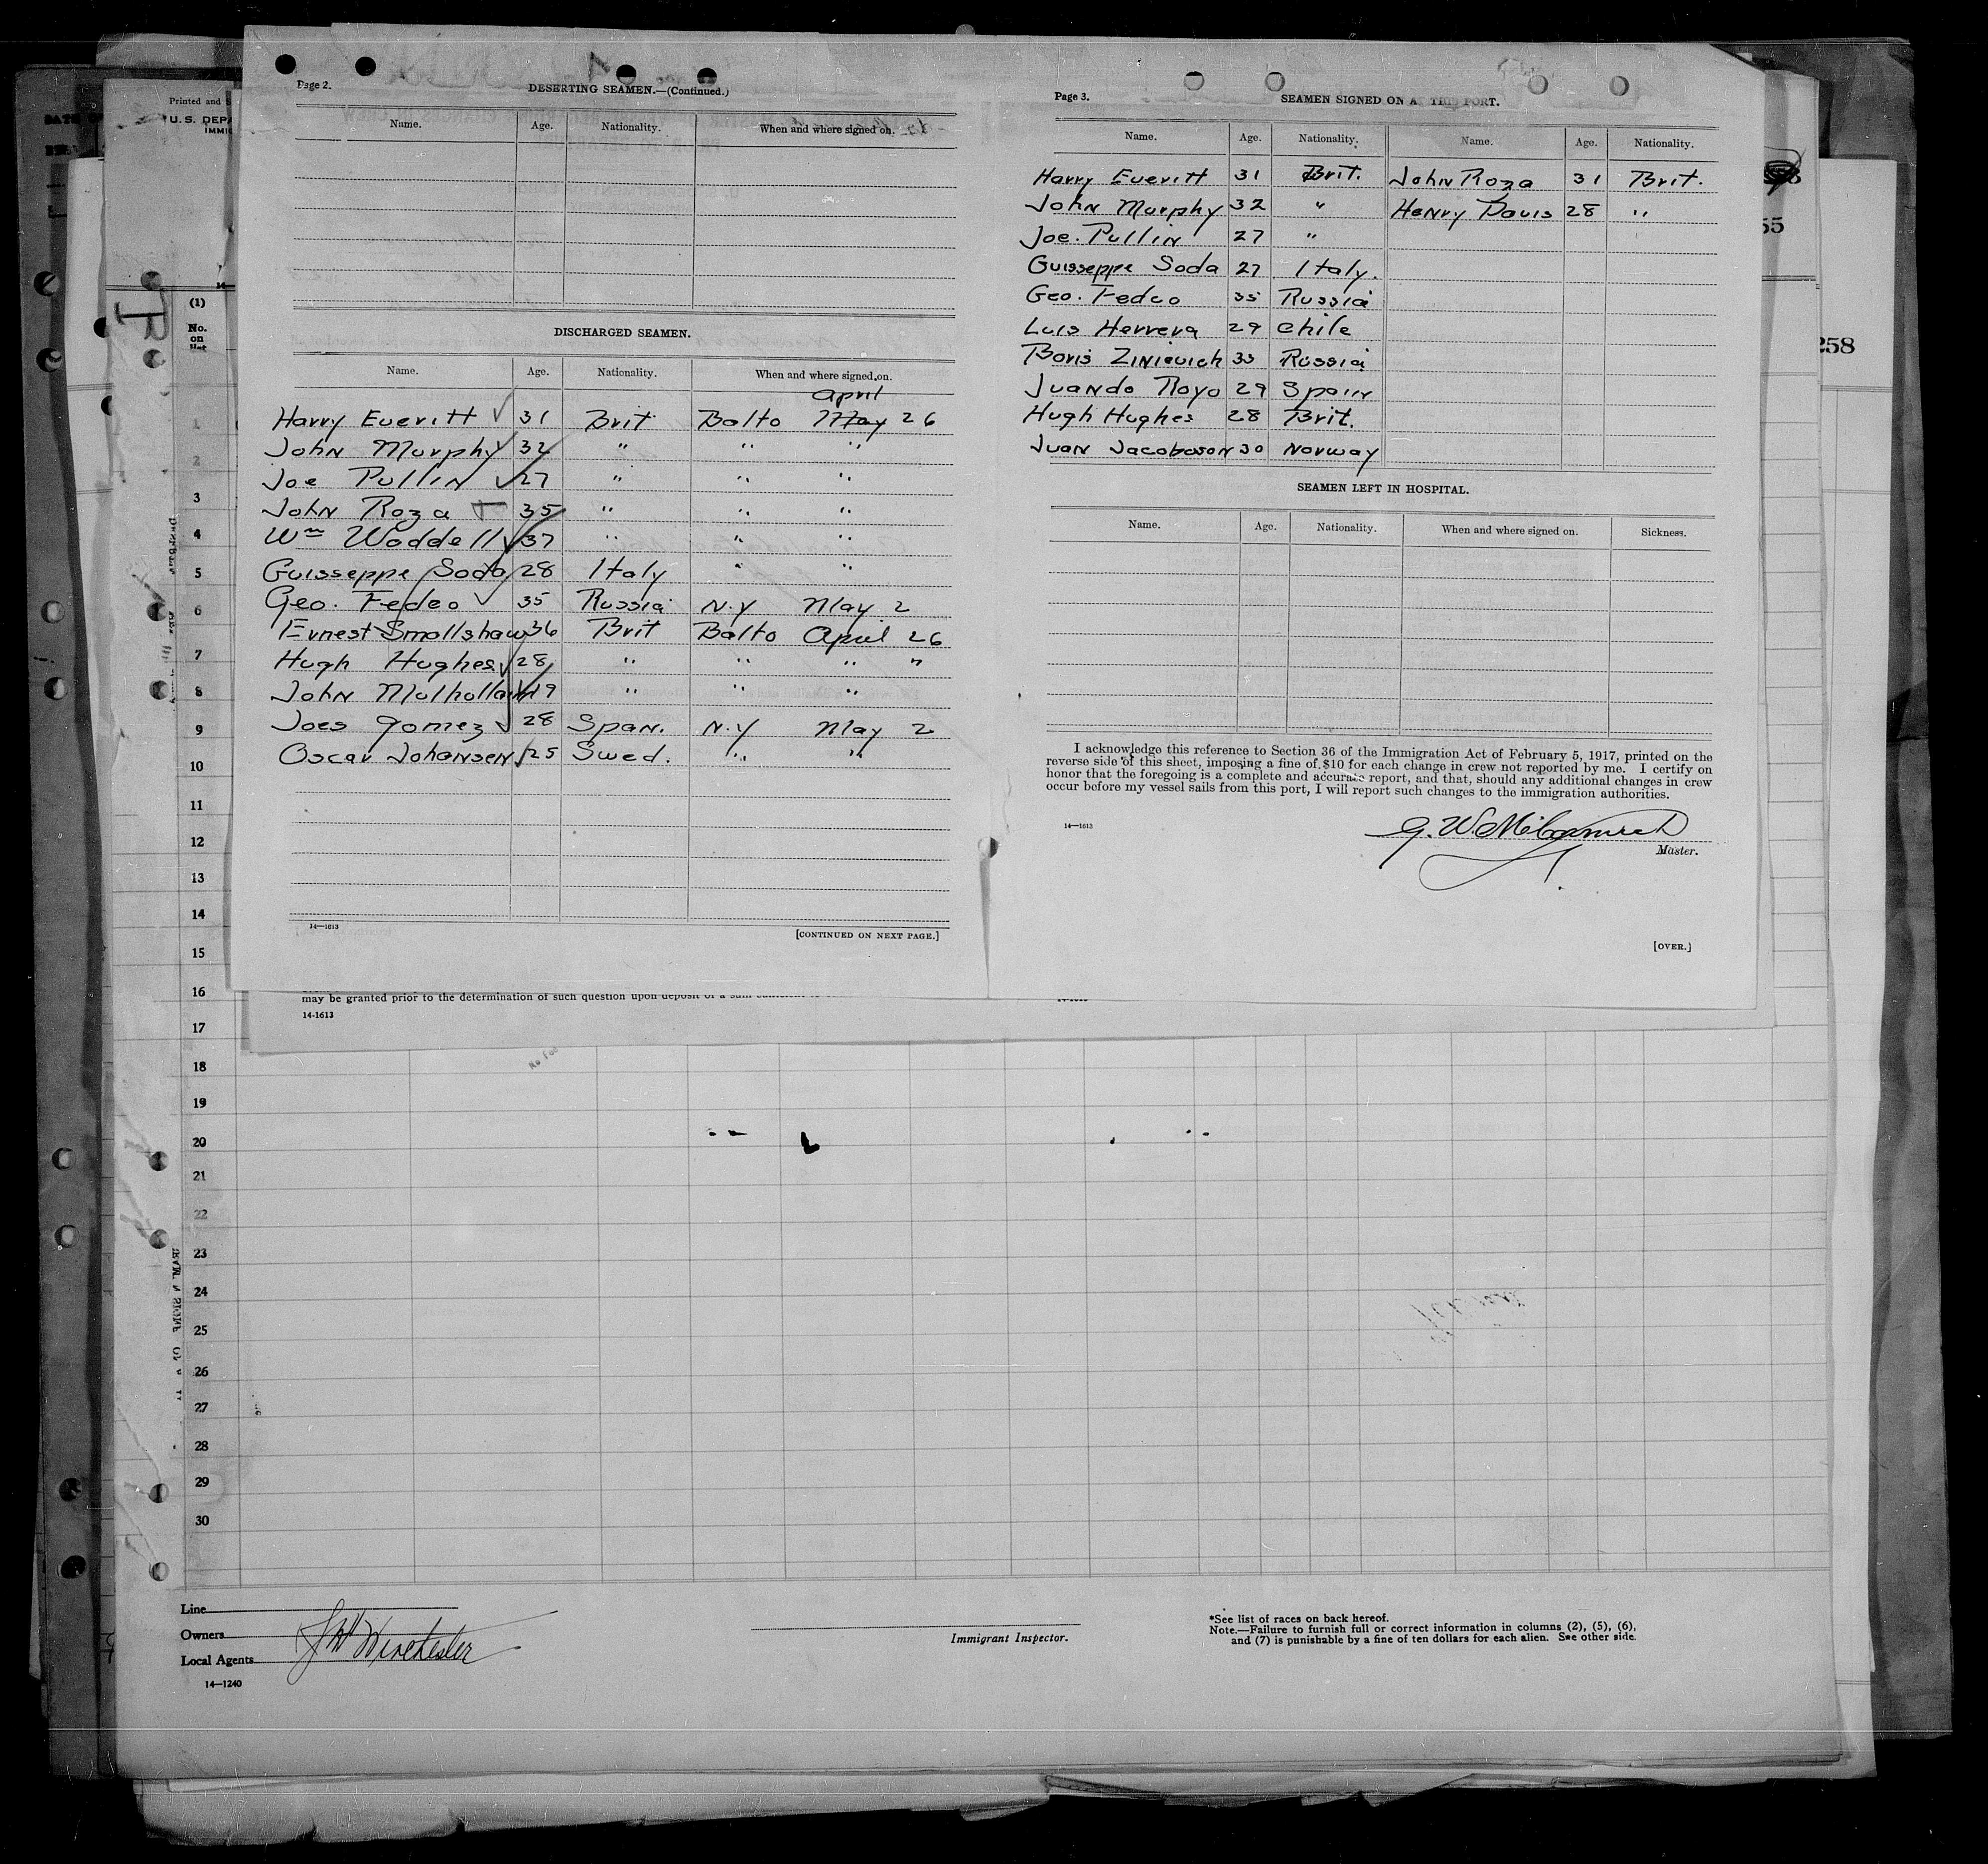 Page 2.
DESERTING SEAMEN.—(Continued.)
Name. Age. Nationality. When and where signed on.
DISCHARGED SEAMEN.
Name. Age. Nationality. When and where signed on.
April
Harry Everitt 31 Brit Balto May 26
John Murphy 32 " " "
Joe Pullin 27 " " "
John Roza 35 " " "
Wm Waddell 37 " " "
Guisseppe Soda 28 Italy " "
Geo. Fedeo 35 Russia N.Y May 2
Ernest Smallshaw 36 Brit Balto April 26
Hugh Hughes 28 " " " "
John Mulholland 19 " " "
Joes Gomez 28 Span. N.Y May 2
Oscar Johansen 25 Swed. " "
14—1613
[CONTINUED ON NEXT PAGE.]
Page 3.
SEAMEN SIGNED ON A THIS PORT.
Name. Age. Nationality. Name. Age. Nationality.
Harry Everitt 31 Brit. John Roza 31 Brit.
John Murphy 32 " Henry Davis 28 "
Joe. Pullin 27 "
Guisseppe Soda 27 Italy.
Geo. Fedeo 35 Russia
Luis Herrera 29 Chile
Boris Zinievich 33 Russia
Juando Royo 29 Spain
Hugh Hughes 28 Brit.
Juan Jacobson 30 Norway
SEAMEN LEFT IN HOSPITAL.
Name. Age. Nationality. When and where signed on. Sickness.
I acknowledge this reference to Section 36 of the Immigration Act of February 5, 1917, printed on the
reverse side of this sheet, imposing a fine of $10 for each change in crew not reported by me. I certify on
honor that the foregoing is a complete and accurate report, and that, should any additional changes in crew
occur before my vessel sails from this port, I will report such changes to the immigration authorities.
14—1613
G. W.
Master.
[OVER.]
Printed and
U.S. DEPA
IMMIG
55
258
(1)
No.
on
list
1
2
3
4
5
6
7
8
9
10
11
12
13
14
15
16
17
18
19
20
21
22
23
24
25
26
27
28
29
30
may be granted prior to the determination of such question upon deposit of a sum
14-1613
Line
Owners
Local Agents
J H Winchester
14—1240
Immigrant Inspector.
*See list of races on back hereof.
Note.—Failure to furnish full or correct information in columns (2), (5), (6),
and (7) is punishable by a fine of ten dollars for each alien. See other side.